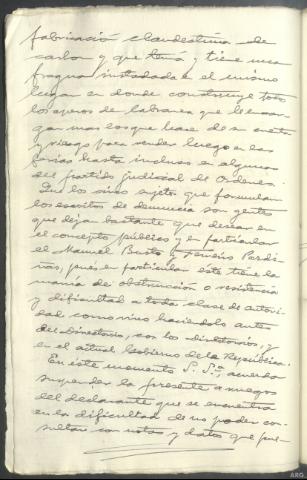 fabricació clandestina de
carbon y que tenía y tiene una
fragua instalada en el mismo
lugar en donde construye todos
los aperos de labranza que le encar-
gan mas los que hace de su cuenta
y riesgo para vender luego en las
ferias hasta incluso en algunas
del partido judicial de Ordenes.
Que los cinco sujetos que formulan
los escritos de denuncia son gentes
que deja bastante que desear en
el concepto público y en particular
el Manuel Busto y Jensiro Pardi-
ñas, pues en particular éste tiene la
manía de obstrucción o resistencia
y dificultad a toda clase de autori-
dad como vino haciendolo antes
del Directorio, con los directorios, y
en el actual Gobierno de la República.
En éste momento S. Sª. acuerda
suspender la presente a ruegos
del declarante que se encuentra
en la dificultad de no poder con-
sultar con notas y datos que pue-
ARG